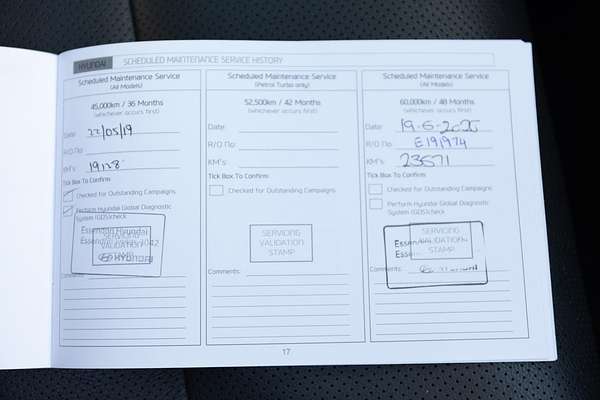 HYUNDAI SCHEDULED MAINTENANCE SERVICE HISTORY
Scheduled Maintenance Service
(All Models)
45,000km / 36 Months
(whichever occurs first)
Date: 22/05/19
R/O No:
KM's: 19128
Tick Box To Confirm:
Checked for Outstanding Campaigns
Perform Hyundai Global Diagnostic
System (GDS)check
Essendon Hyundai
SERVICING
VALIDATION
STAMP
Comments:
Scheduled Maintenance Service
(Petrol Turbo only)
52,500km / 42 Months
(whichever occurs first)
Date:
R/O No:
KM's:
Tick Box To Confirm:
Checked for Outstanding Campaigns
SERVICING
VALIDATION
STAMP
Comments:
Scheduled Maintenance Service
(All Models)
60,000km / 48 Months
(whichever occurs first)
Date: 19-6-2020
R/O No: E191974
KM's: 23571
Tick Box To Confirm:
Checked for Outstanding Campaigns
Perform Hyundai Global Diagnostic
System (GDS)check
SERVICING
VALIDATION
STAMP
Comments:
17